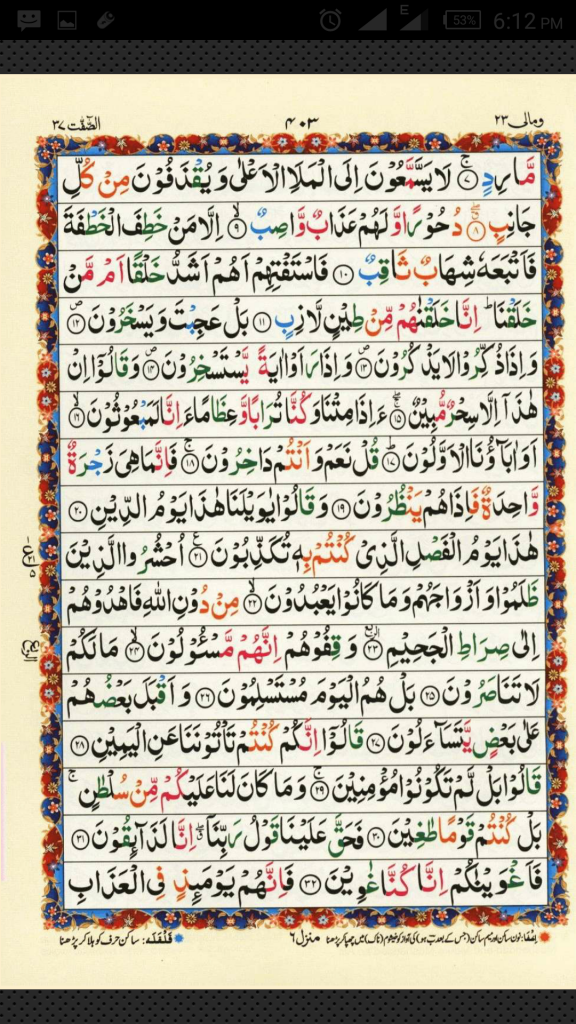 E 53% 6:12 PM
ومالی ۲۳ ۴۰۳ الصّٰفّٰت ۳۷
مَّارِدٍ ۚ‏﴿۷﴾ لَا يَسَّمَّعُوۡنَ اِلَى الۡمَلَاِ الۡاَعۡلٰى وَيُقۡذَفُوۡنَ مِنۡ كُلِّ
جَانِبٍ ۖ‏﴿۸﴾ دُحُوۡرًا وَّلَهُمۡ عَذَابٌ وَّاصِبٌ ۙ‏﴿۹﴾ اِلَّا مَنۡ خَطِفَ الۡخَطۡفَةَ
فَاَتۡبَعَهٗ شِهَابٌ ثَاقِبٌ‏﴿۱۰﴾ فَاسۡتَفۡتِهِمۡ اَهُمۡ اَشَدُّ خَلۡقًا اَمۡ مَّنۡ
خَلَقۡنَا ؕ اِنَّا خَلَقۡنٰهُمۡ مِّنۡ طِيۡنٍ لَّازِبٍ‏﴿۱۱﴾ بَلۡ عَجِبۡتَ وَيَسۡخَرُوۡنَ ‏﴿۱۲﴾
وَاِذَا ذُكِّرُوۡا لَا يَذۡكُرُوۡنَ ‏﴿۱۳﴾ وَاِذَا رَاَوۡا اٰيَةً يَّسۡتَسۡخِرُوۡنَ ‏﴿۱۴﴾ وَقَالُوۡۤا اِنۡ
هٰذَاۤ اِلَّا سِحۡرٌ مُّبِيۡنٌ ‏﴿۱۵﴾ ءَاِذَا مِتۡنَا وَكُنَّا تُرَابًا وَّعِظَامًا ءَاِنَّا لَمَبۡعُوۡثُوۡنَ ۙ‏﴿۱۶﴾
اَوَاٰبَآؤُنَا الۡاَوَّلُوۡنَ ؕ‏﴿۱۷﴾ قُلۡ نَعَمۡ وَاَنۡتُمۡ دَاخِرُوۡنَ ۚ‏﴿۱۸﴾ فَاِنَّمَا هِىَ زَجۡرَةٌ
وَّاحِدَةٌ فَاِذَا هُمۡ يَنۡظُرُوۡنَ‏﴿۱۹﴾ وَقَالُوۡا يٰوَيۡلَنَا هٰذَا يَوۡمُ الدِّيۡنِ‏﴿۲۰﴾
هٰذَا يَوۡمُ الۡفَصۡلِ الَّذِىۡ كُنۡتُمۡ بِهٖ تُكَذِّبُوۡنَ‏﴿۲۱﴾ اُحۡشُرُوا الَّذِيۡنَ
ظَلَمُوۡا وَاَزۡوَاجَهُمۡ وَمَا كَانُوۡا يَعۡبُدُوۡنَۙ‏﴿۲۲﴾ مِنۡ دُوۡنِ اللّٰهِ فَاهۡدُوۡهُمۡ
اِلٰى صِرَاطِ الۡجَحِيۡمِ‏﴿۲۳﴾ وَقِفُوۡهُمۡ اِنَّهُمۡ مَّسۡـُٔوۡلُوۡنَۙ‏﴿۲۴﴾ مَا لَكُمۡ
لَا تَنَاصَرُوۡنَ‏﴿۲۵﴾ بَلۡ هُمُ الۡيَوۡمَ مُسۡتَسۡلِمُوۡنَ‏﴿۲۶﴾ وَاَقۡبَلَ بَعۡضُهُمۡ
عَلٰى بَعۡضٍ يَّتَسَآءَلُوۡنَ‏﴿۲۷﴾ قَالُوۡۤا اِنَّكُمۡ كُنۡتُمۡ تَاۡتُوۡنَنَا عَنِ الۡيَمِيۡنِ‏﴿۲۸﴾
قَالُوۡا بَلْ لَّمۡ تَكُوۡنُوۡا مُؤۡمِنِيۡنَۚ‏﴿۲۹﴾ وَمَا كَانَ لَنَا عَلَيۡكُمۡ مِّنۡ سُلۡطٰنٍۚ
بَلۡ كُنۡتُمۡ قَوۡمًا طٰغِيۡنَ‏﴿۳۰﴾ فَحَقَّ عَلَيۡنَا قَوۡلُ رَبِّنَاۤ ۖ اِنَّا لَذَآٮِٕقُوۡنَ‏﴿۳۱﴾
فَاَغۡوَيۡنٰكُمۡ اِنَّا كُنَّا غٰوِيۡنَ‏﴿۳۲﴾ فَاِنَّهُمۡ يَوۡمَٮِٕذٍ فِى الۡعَذَابِ
اِخفا: نون ساکن اور میم ساکن (جس کے بعد ب ہو) کی آواز کو خیشوم (ناک) میں چھپا کر پڑھنا منزل ۶ قلقلہ: ساکن حرف کو ہلا کر پڑھنا